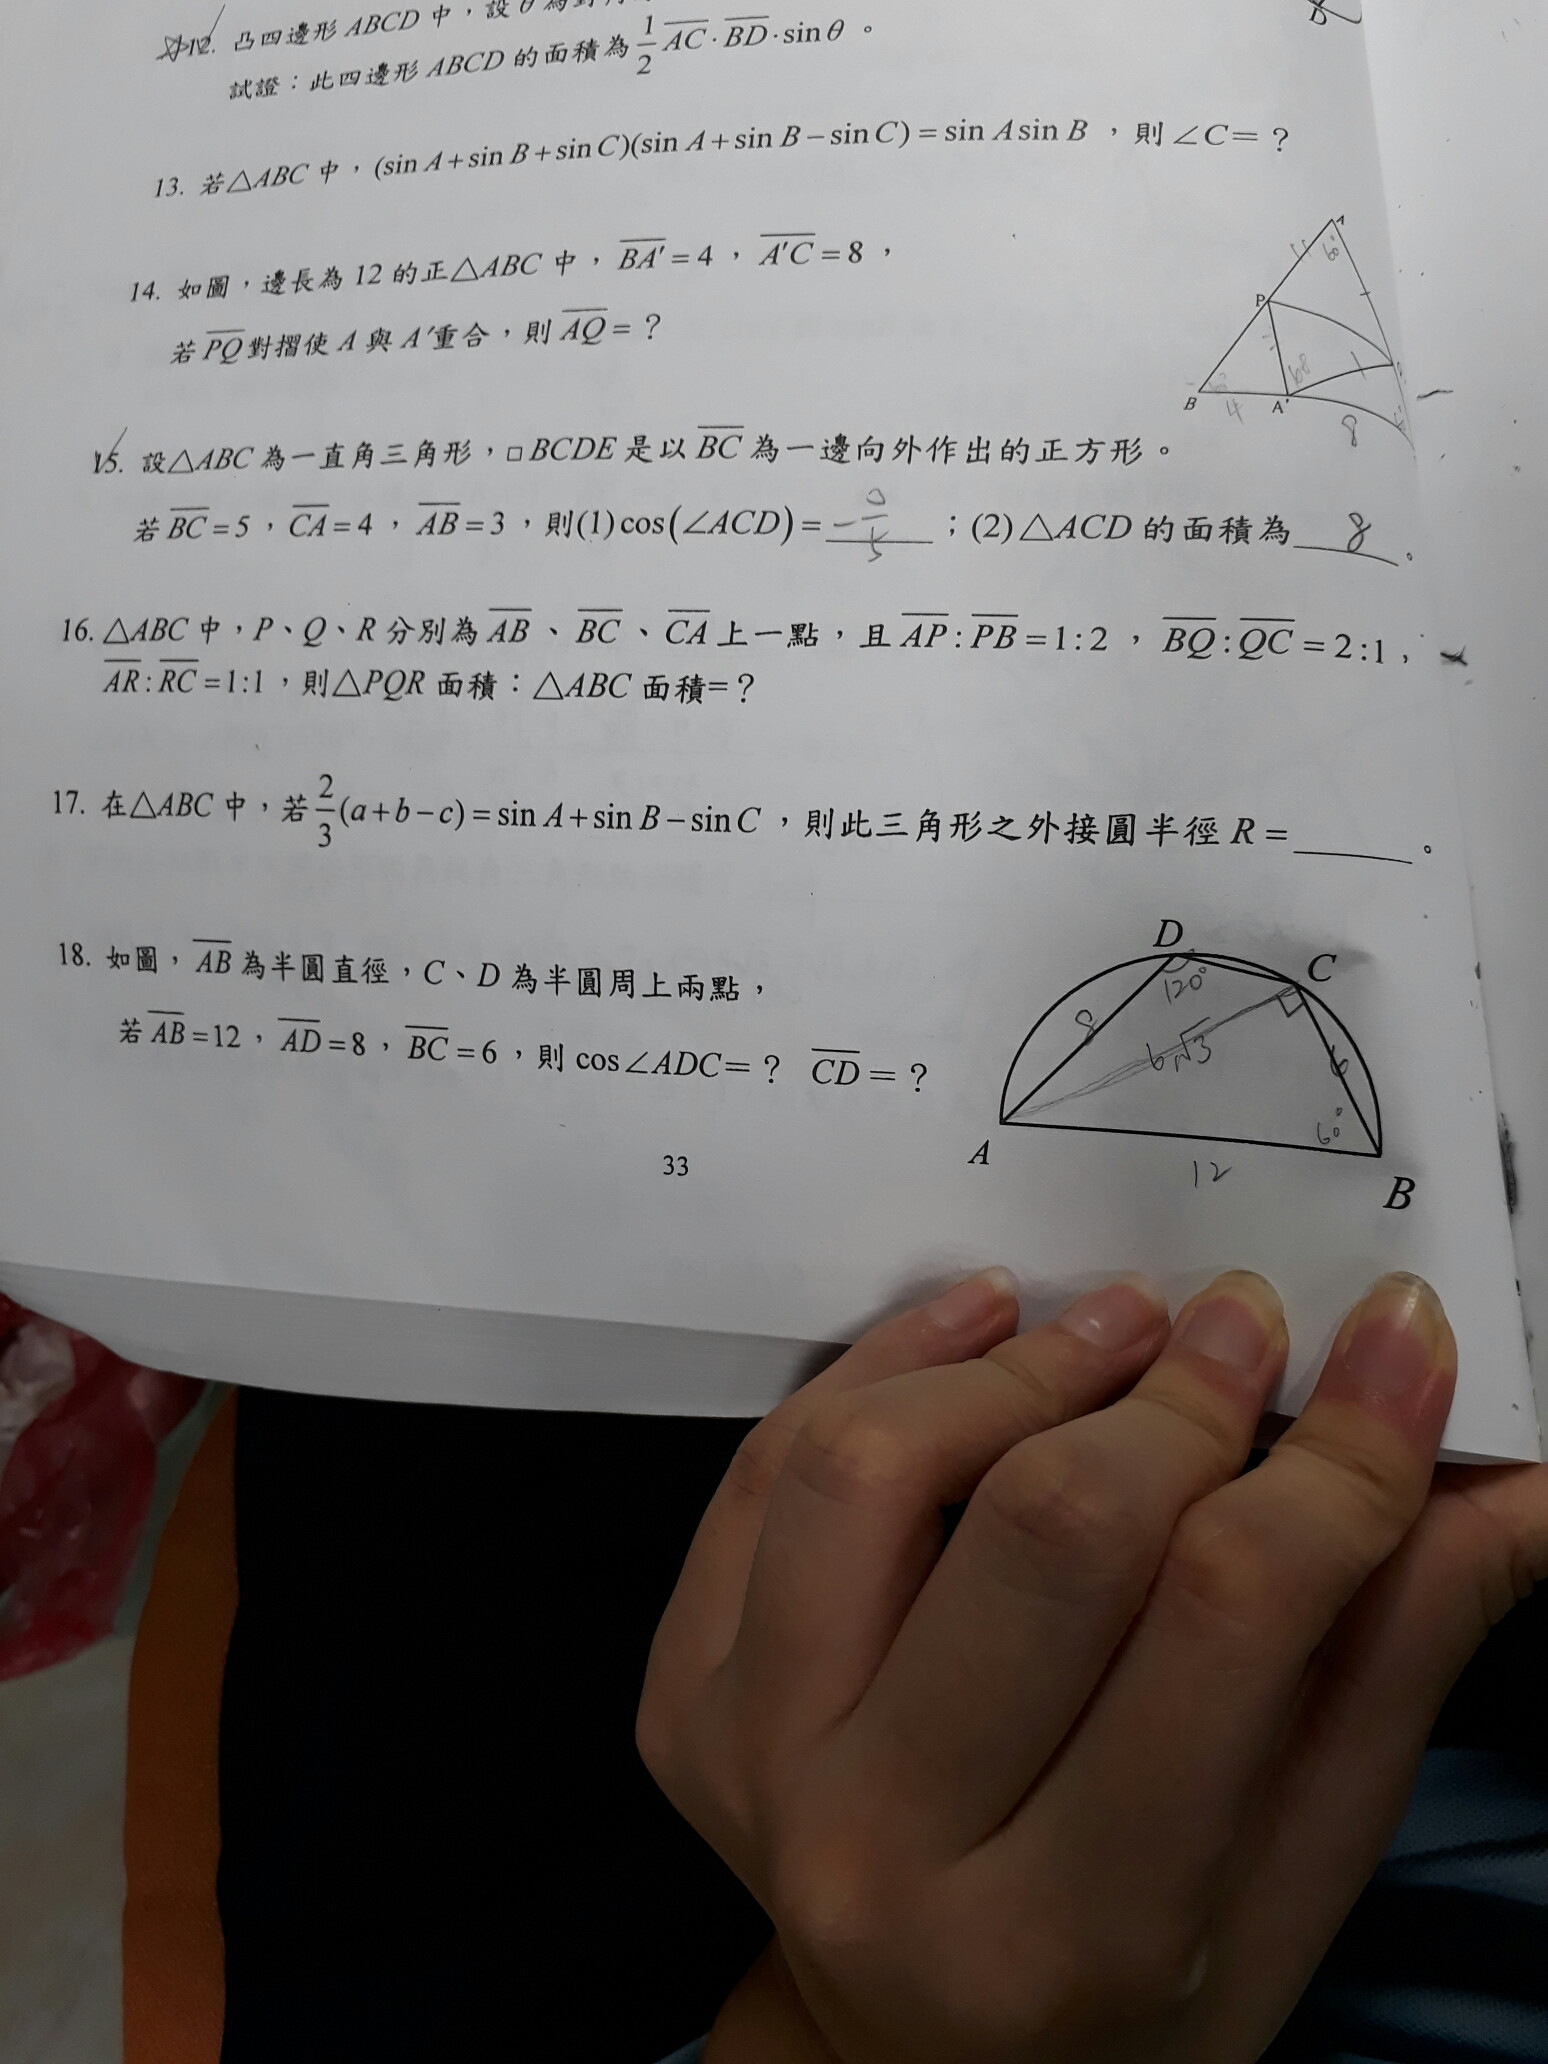 12. 凸四邊形 ABCD 中，設 θ 為
試證：此四邊形 ABCD 的面積為 1/2 AC · BD · sin θ 。
D
13. 若△ABC 中，(sin A + sin B + sin C)(sin A + sin B − sin C) = sin A sin B ，則 ∠C = ?
14. 如圖，邊長為 12 的正△ABC 中，BA' = 4 ，A'C = 8 ，
若 PQ 對摺使 A 與 A' 重合，則 AQ = ?
A
60°
P
B
4
A'
8
15. 設△ABC 為一直角三角形，□ BCDE 是以 BC 為一邊向外作出的正方形。
若 BC = 5 ，CA = 4 ，AB = 3 ，則(1) cos(∠ACD) = ；(2) △ACD 的面積為 8 。
16. △ABC 中，P、Q、R 分別為 AB 、 BC 、 CA 上一點，且 AP : PB = 1:2 ， BQ : QC = 2:1 ，
AR : RC = 1:1 ，則△PQR 面積：△ABC 面積=？
17. 在△ABC 中，若 2/3 (a + b − c) = sin A + sin B − sin C ，則此三角形之外接圓半徑 R = 。
18. 如圖，AB 為半圓直徑，C、D 為半圓周上兩點，
若 AB = 12 ，AD = 8 ，BC = 6 ，則 cos ∠ADC = ? CD = ?
D
C
120°
8
6√3
6
60°
A
12
B
33